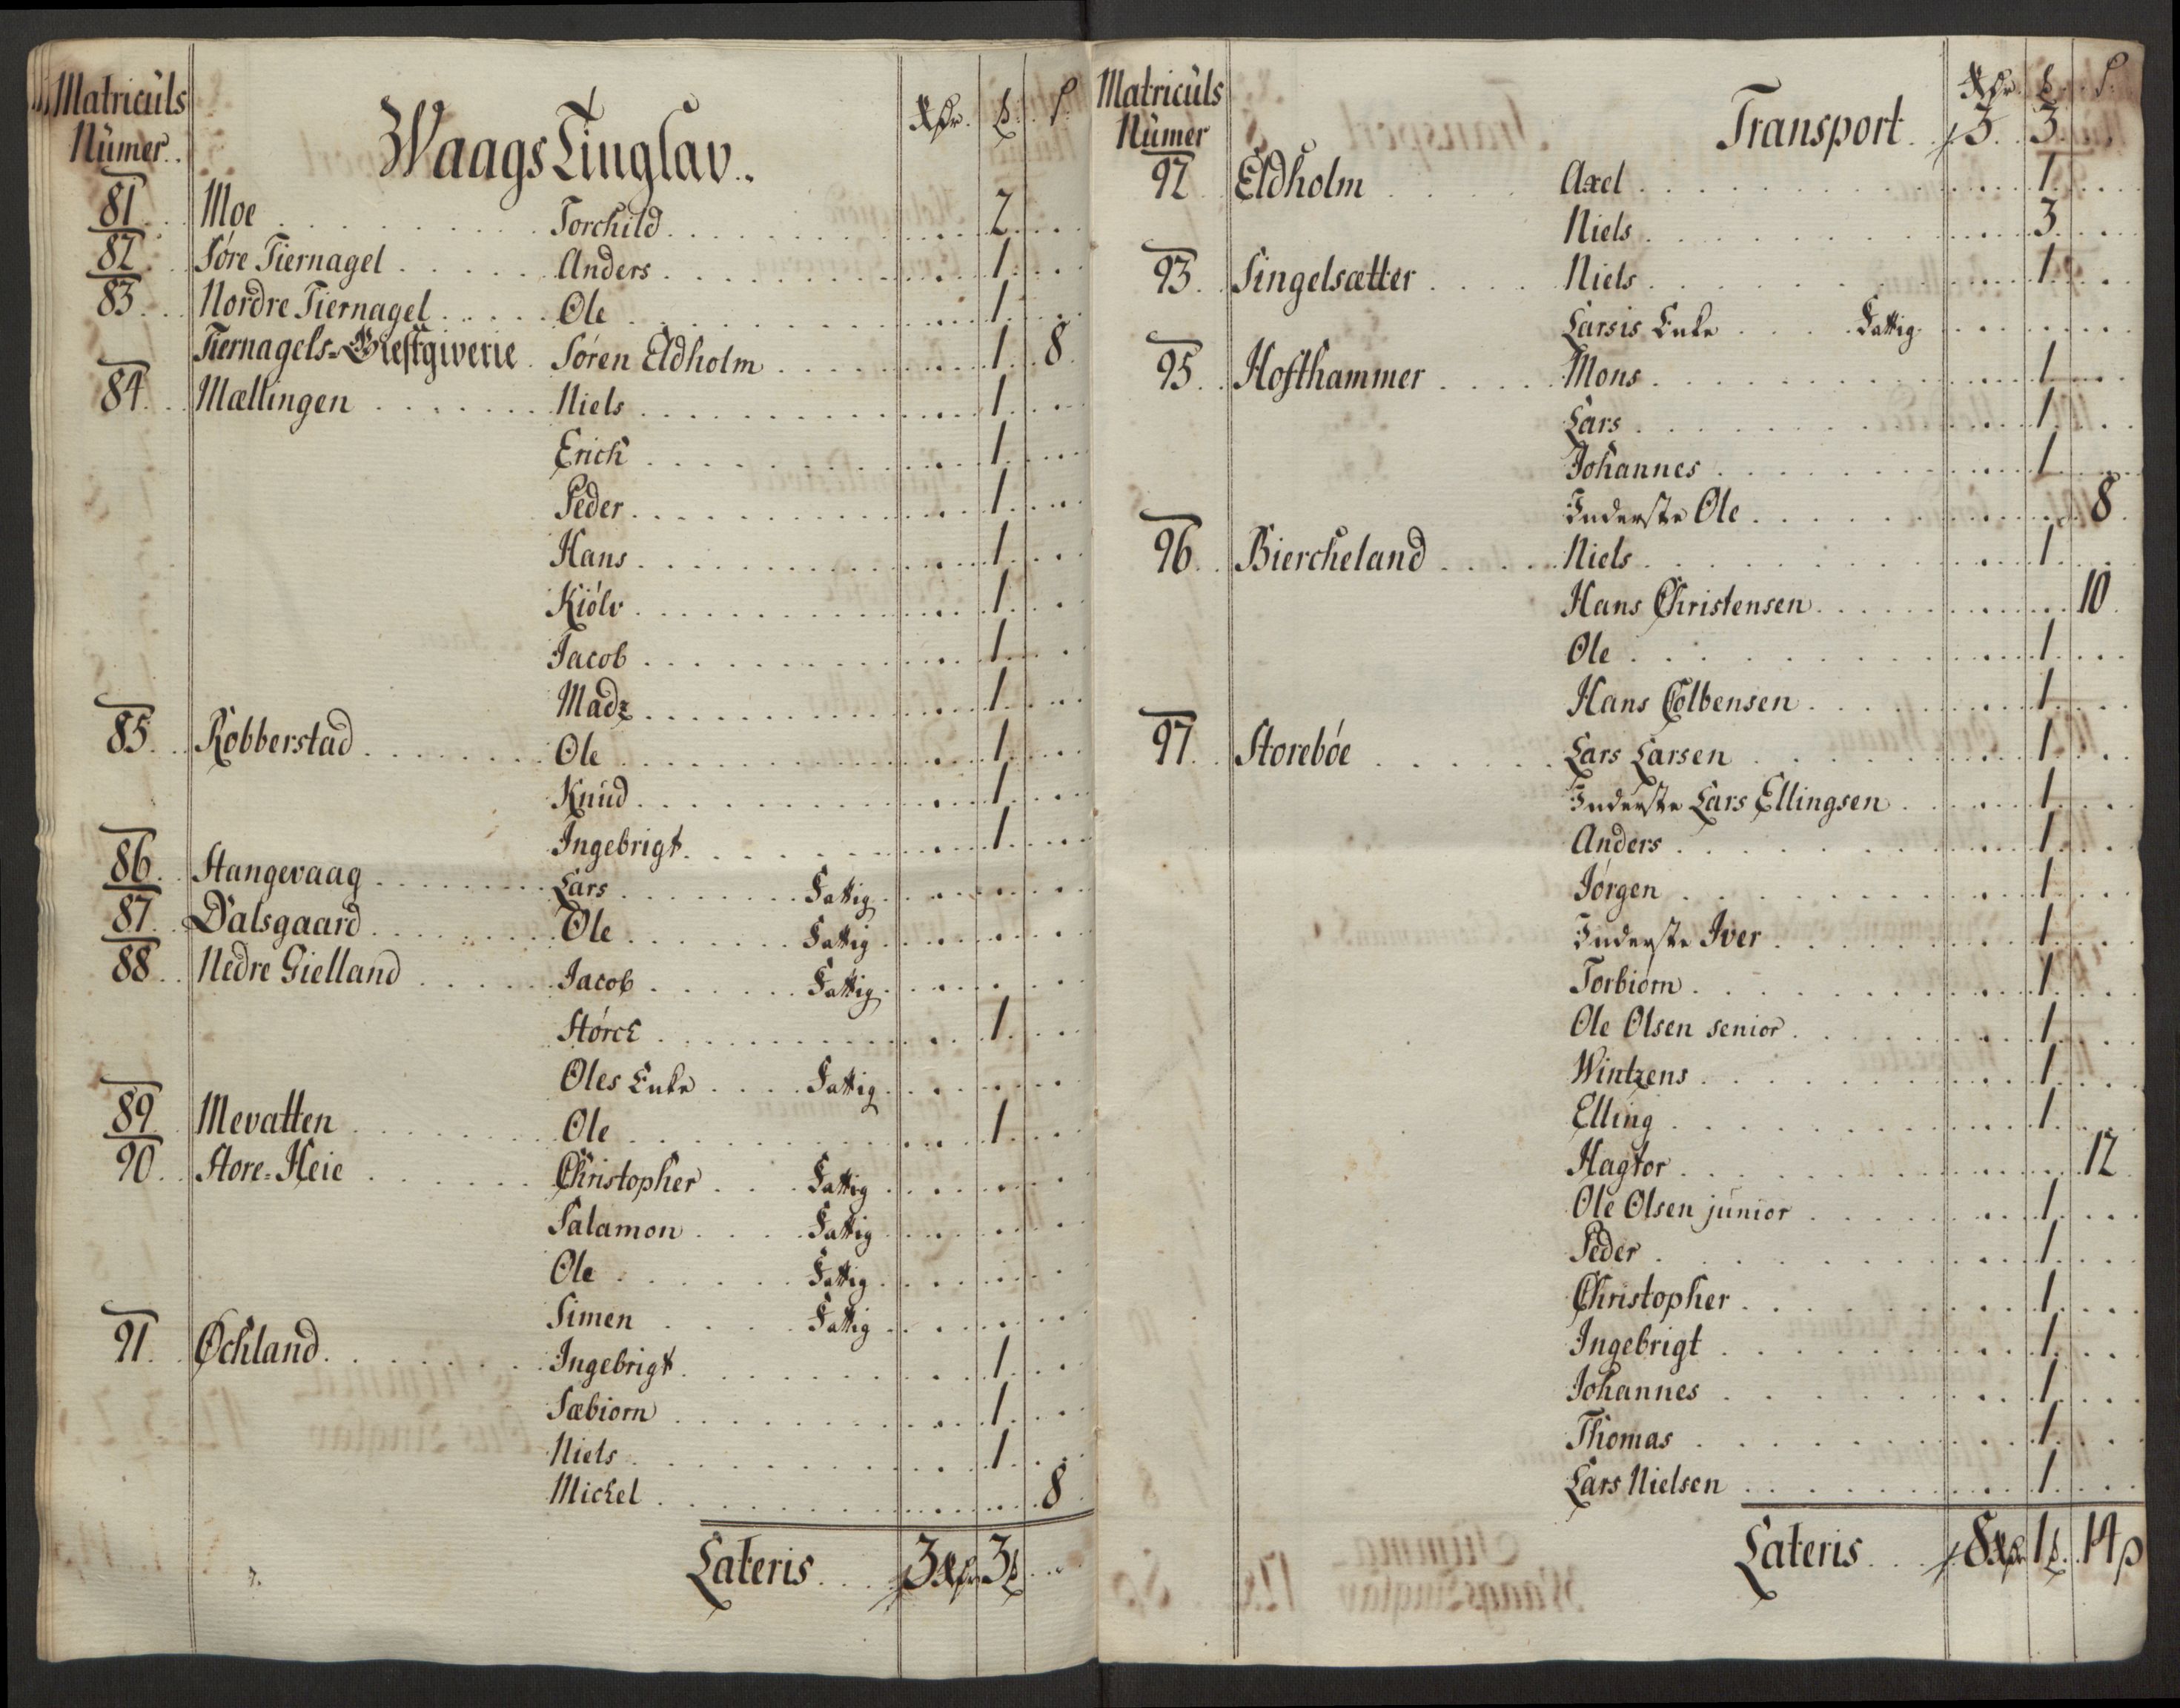 Matriculs
Nümer.
Waags Tinglav.
Rdr. ß. S.
81. Moe Torchild 2
82. Søre Tiernagel Anders 1
83. Nordre Tiernagel Ole 1
Tiernagels-Giestgiverie Søren Eldholm 1 8
84. Mællingen Niels 1
Erich 1
Peder 1
Hans 1
Kiólv 1
Jacob 1
Madz 1
85. Robberstad Ole 1
Knud 1
Ingebrigt 1
86. Stangevaag Lars Fattig
87. Dalsgaard Ole Fattig
88. Nedre Gielland Jacob Fattig
Størck 1
Oles Enke Fattig
89. Mevatten Ole 1
90. Store=Heie Christopher Fattig
Salamon Fattig
Ole Fattig
Simen Fattig
91. Øchland Ingebrigt 1
Sæbiorn 1
Niels 1
Mickel 8
Lateris 3 Rdr 3
Matriculs
Nümer
Transport 3. 3
92 Eldholm Axel 1
Niels 3
93. Singelsætter Niels 1
Larsis Enke Fattig
95. Hofthammer Mons 1
Lars 1
Johannes 1
Inderste Ole 8
96. Biercheland Niels 1
Hans Christensen 10
Ole 1
Hans Colbensen 1
97. Storebóe Lars Larsen 1
Inderste Lars Ellingsen 1
Anders 1
Jórgen 1
Inderste Iver 1
Torbiórn 1
Ole Olsen senior 1
Wintzens 1
Elling 1
Hagtor 12
Ole Olsen junior 1
Peder 1
Christopher 1
Ingebrigt 1
Johannes 1
Thomas 1
Lars Nielsen 1
Lateris 8 Rdr 1 14